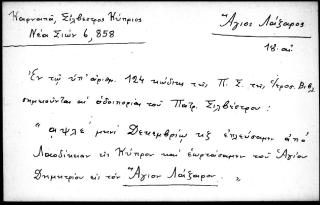 Καρναπᾶ, Σίλβεστρος Κύπριος
Νέα Σιών 6, 858
Ἅγιος Λάζαρος
18 αἰ.
Ἐν τῷ ὑπ' ἀριθμ. 124 κώδικι τῆς Π. Σ. τῆς Ἱεροσ. Βιβλ.
σημειοῦνται αἱ ὁδοιπορίαι τοῦ Πατρ. Σιλβέστρου:
"αψλε μηνὶ Δεκεμβρίῳ κξ ἐπλεύσαμεν ἀπὸ
Λαοδίκειαν εἰς Κύπρον καὶ ἑωρτάσαμεν τοῦ Ἁγίου
Δημητρίου εἰς τὸν Ἅγιον Λάζαρον. "